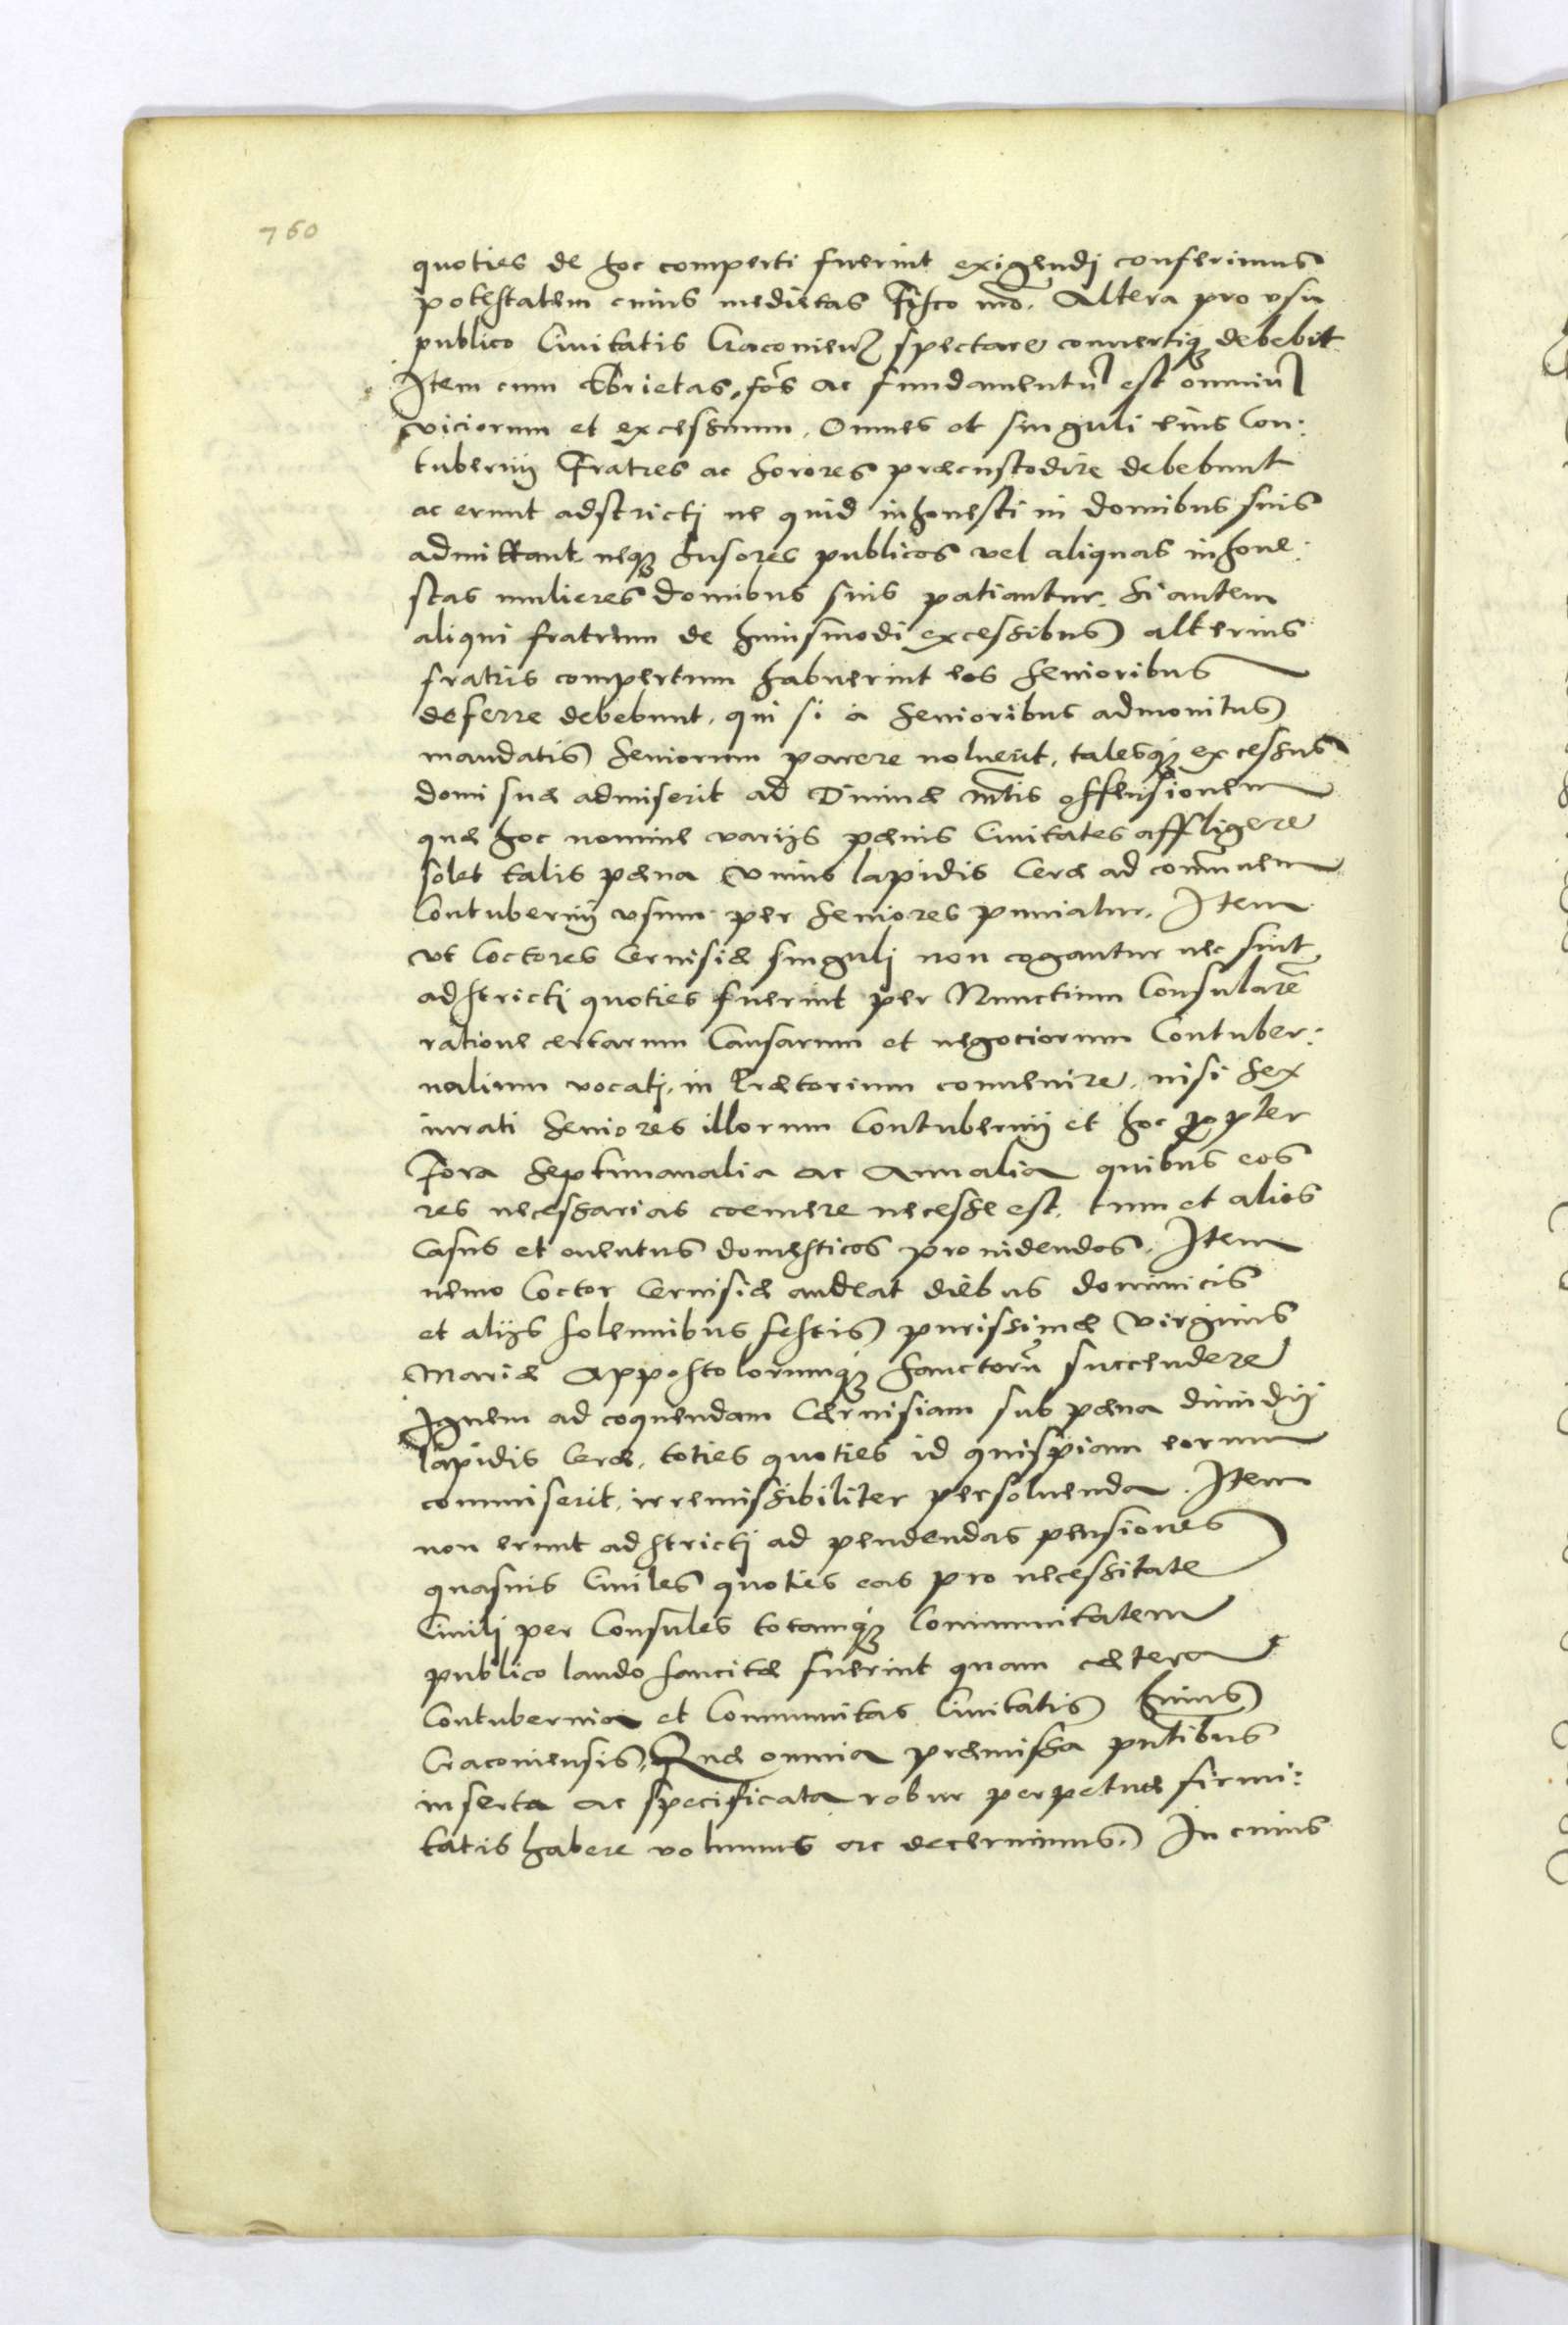 760
quoties de hoc comperti fuerint exigendj conferimus
potestatem cuius medietas Fisco nr̃o. Altera pro vsu
publico Ciuitatis Cracouien̄ spectare conuertiq; debebit
Item cum Ebrietas, fōs ac fundamentū est omniū
viciorum et excessuum. Omnes et singuli eius Con:
tubernij Fratres ac Sorores præcustodire debebunt
ac erunt adstrictj ne quid inhonesti in domibus suis
admittant neq; Lusores publicos vel aliquas inhone:
stas mulieres domibus suis patiantur. Si autem
aliqui fratrum de huiusmodi excessibus alterius
fratris compertum habuerint eos Senioribus
deferre debebunt, qui si à Senioribus admonitus
mandatis Seniorum parere noluerit, talesq; excessus
domi suæ admiserit ad Diuinæ Mtis offensionem
quæ hoc nomine varijs pænis Ciuitates affligere
solet talis pæna vnius lapidis Ceræ ad com̄unem
Contubernij vsum per Seniores puniatur. Item
vt Coctores Ceruisiæ singulj non cogantur nec sint
adstrictj quoties fuerint per Nunctium Consularē
ratione certarum Causarum et negociorum Contuber:
nalium vocatj, in Prætorium conuenire, nisi Sex
iurati Seniores illorum Contubernij et hoc propter
Fora Septimanalia ac Annalia quibus eos
res necessarias coemere necesse est, tum et alios
Casus et euentus domesticos prouidendos. Item
nemo Coctor Ceruisiæ audeat diebus dominicis
et alijs solennibus festis purissimæ Virginis
Mariæ Appostolorumq; Sanctorū succendere
Ignem ad coquendam Cæruisiam sub pæna dimidij
lapidis Ceræ, toties quoties id quispiam eorum
commiserit, irremissibiliter persoluenda. Item
non erunt adstrictj ad pendendas pensiones
quasuis Ciuiles quoties eas pro necessitate
Ciuilj per Consules totamq; Communitatem
publico laudo sancitæ fuerint quam cætera
Contubernia et Communitas Ciuitatis huius
Cracouiensis. Quæ omnia præmissa pn̄tibus
inserta ac specificata robur perpetuæ firmi:
tatis habere volumus ac decernimus. In cuius